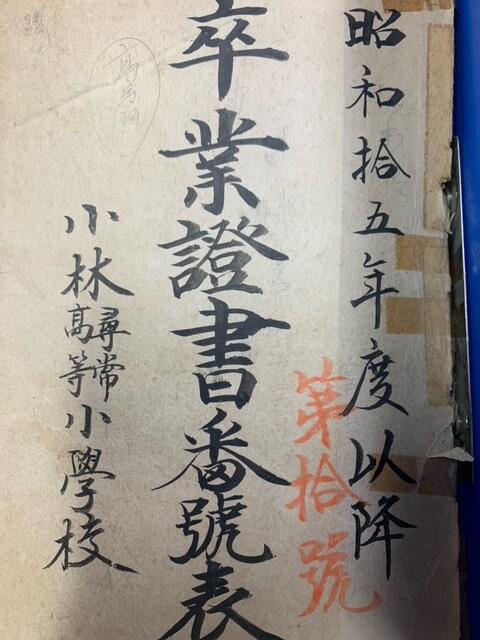 昭和拾五年度以降
第拾號
卒業證書番號表
小林尋常高等小學校